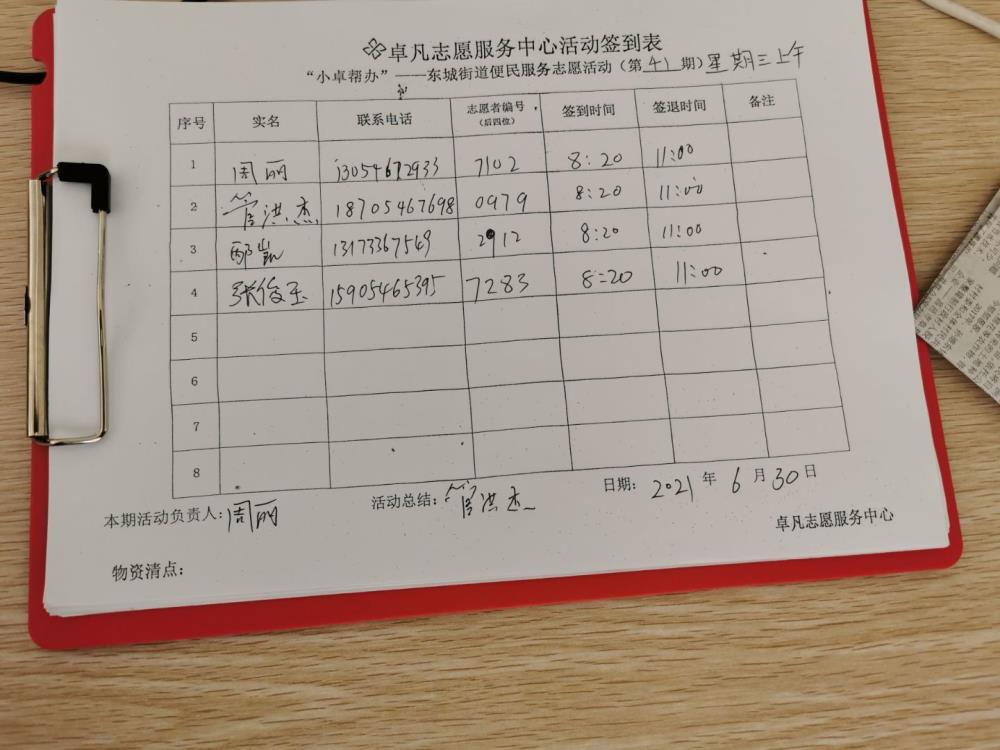 卓凡志愿服务中心活动签到表
“小卓帮办”——东城街道便民服务志愿活动（第41期）星期三上午
序号 实名 联系电话 志愿者编号（后四位） 签到时间 签退时间 备注
1 周丽 13054672933 7102 8:20 11:00
2 管洪杰 18705467698 0979 8:20 11:00
3 邴凯 13173367549 2912 8:20 11:00
4 张俊玉 15905465395 7283 8:20 11:00
5
6
7
8
本期活动负责人：周丽 活动总结：管洪杰 日期：2021年6月30日
卓凡志愿服务中心
物资清点：